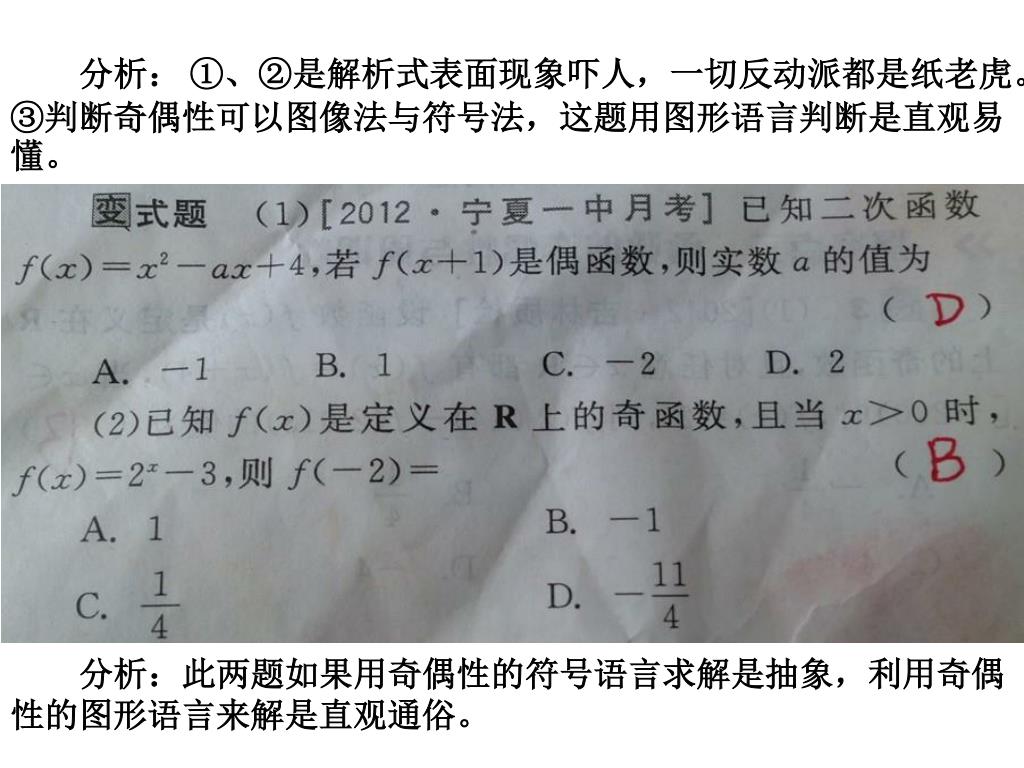 分析： ①、②是解析式表面现象吓人，一切反动派都是纸老虎。
③判断奇偶性可以图像法与符号法，这题用图形语言判断是直观易
懂。
变式题 (1)[2012·宁夏一中月考] 已知二次函数
f(x)=x²-ax+4,若 f(x+1)是偶函数,则实数 a 的值为
( D )
A. -1 B. 1 C. -2 D. 2
(2)已知 f(x)是定义在 R 上的奇函数,且当 x>0 时,
f(x)=2ˣ-3,则 f(-2)= ( B )
A. 1 B. -1
C. 1/4 D. -11/4
分析：此两题如果用奇偶性的符号语言求解是抽象，利用奇偶
性的图形语言来解是直观通俗。